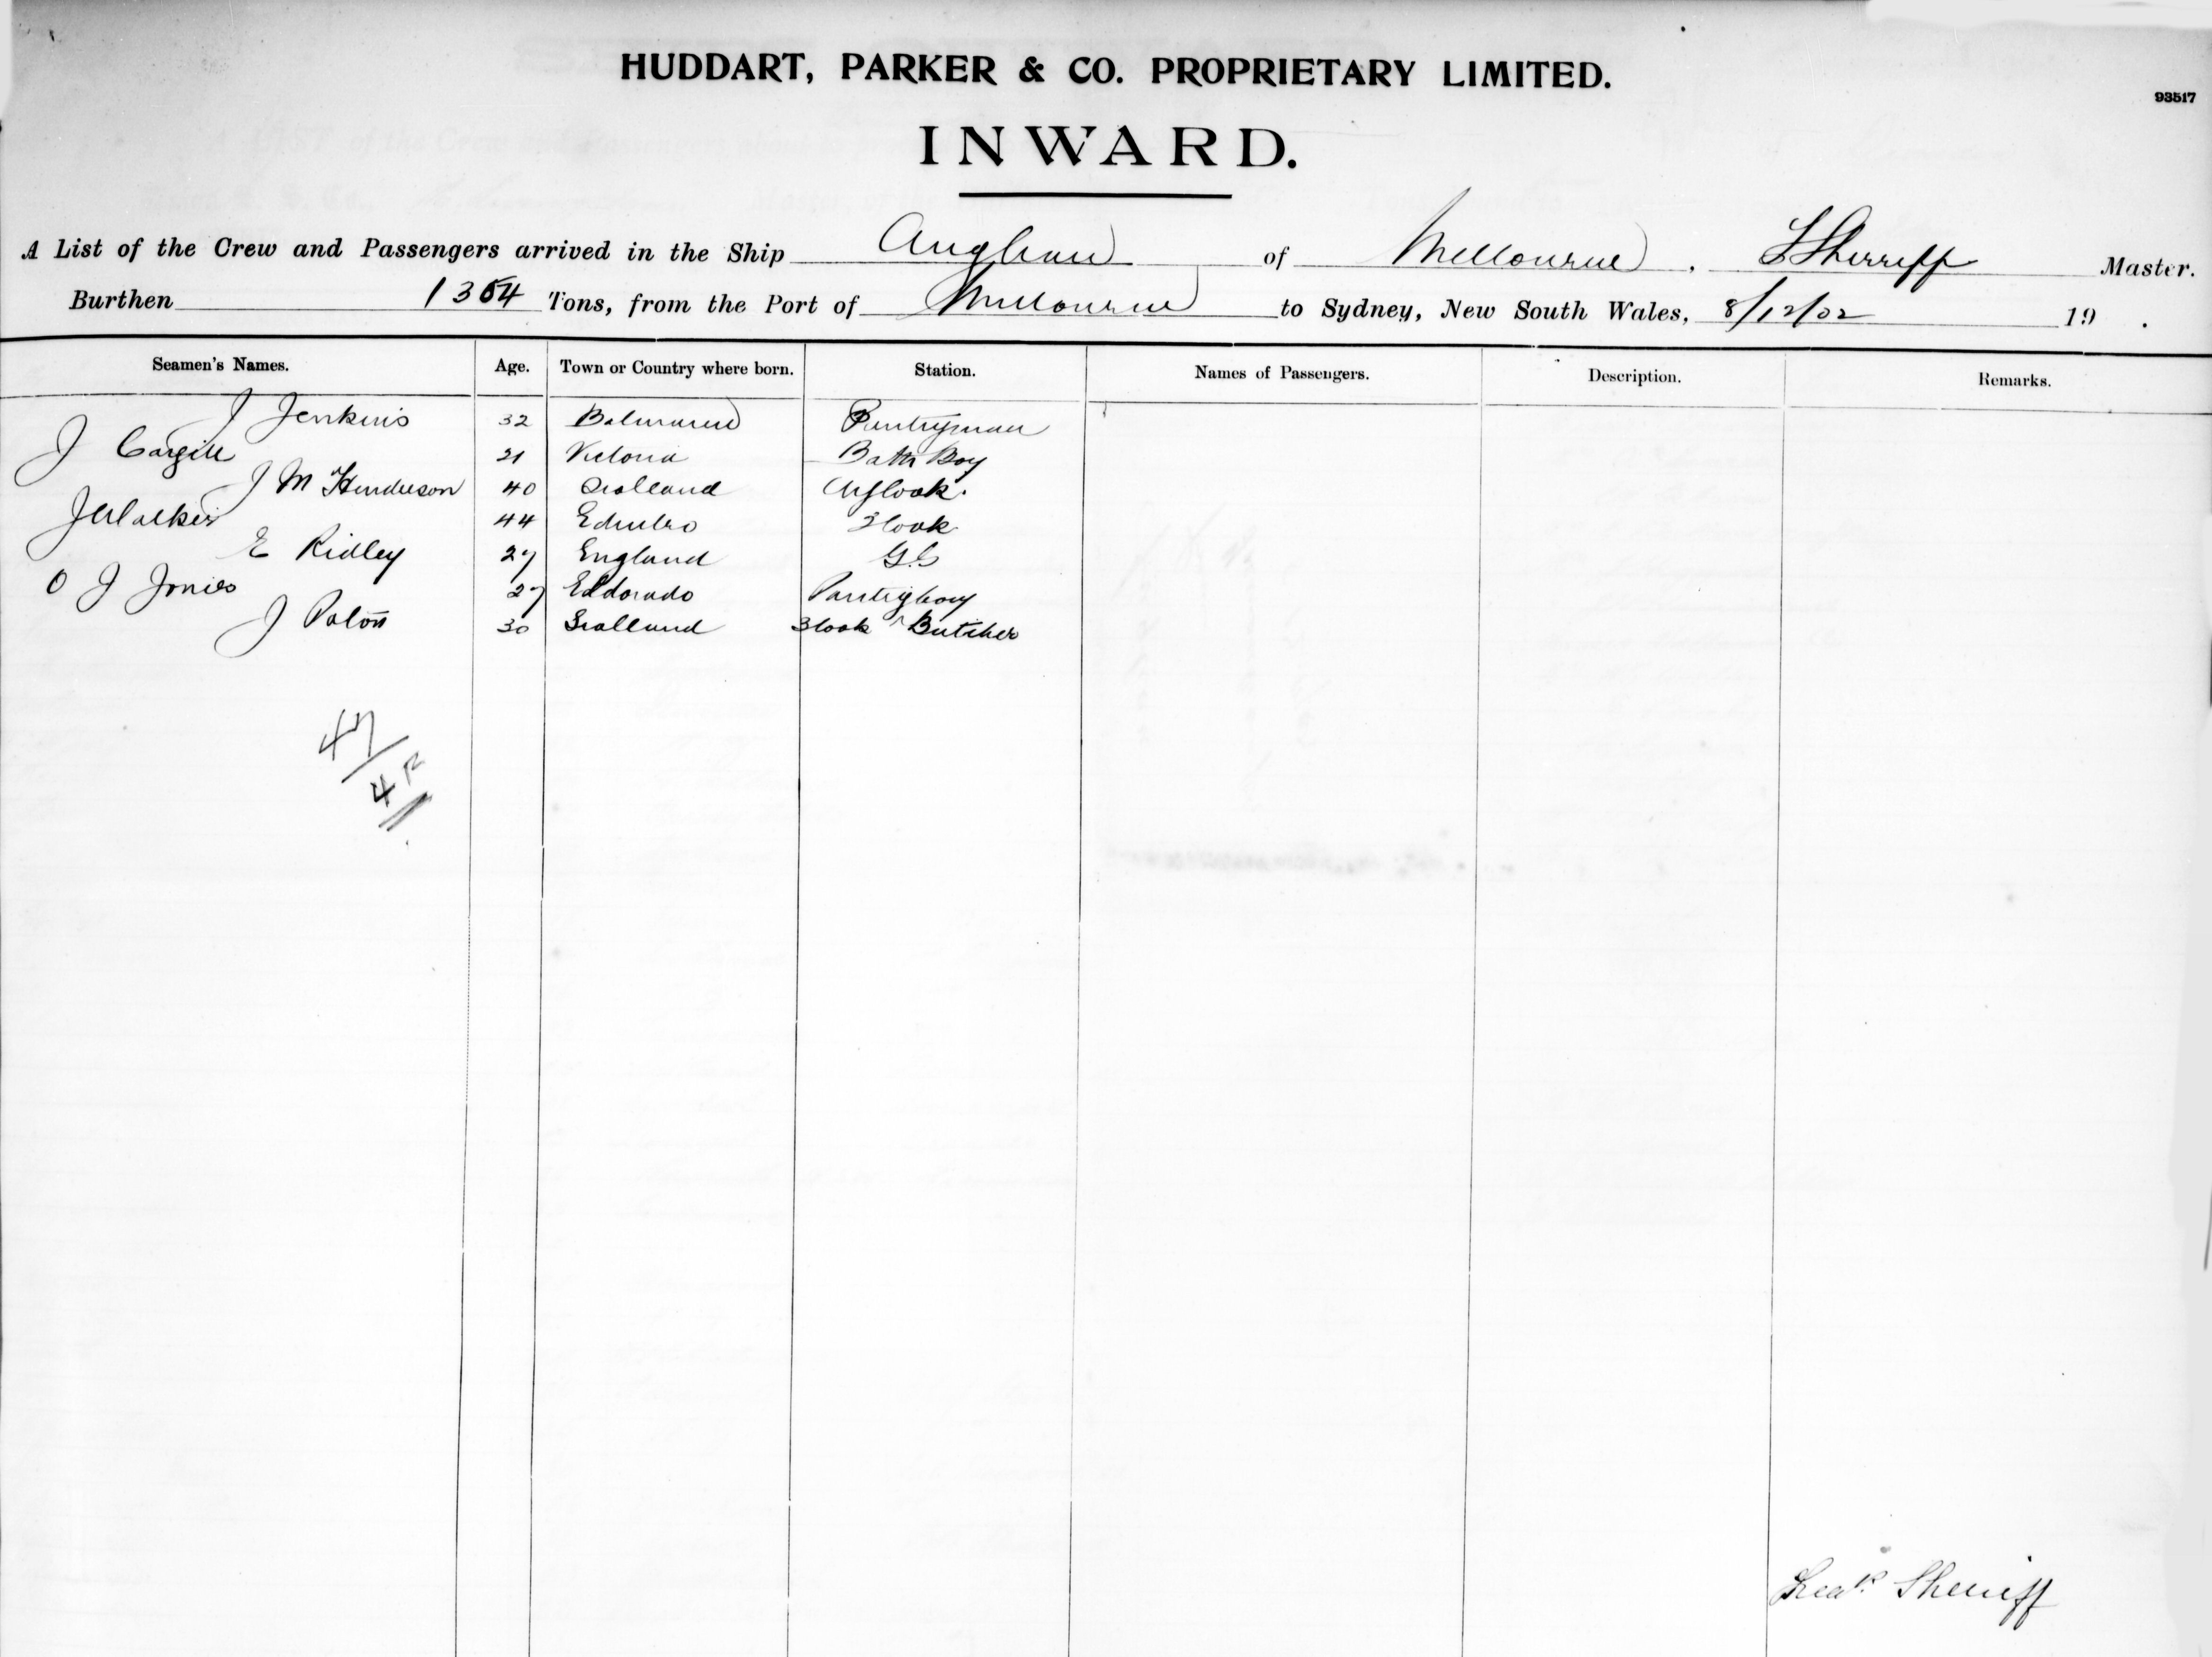 HUDDART, PARKER & CO. PROPRIETARY LIMITED.
93517
INWARD.
A List of the Crew and Passengers arrived in the Ship Anglian of Melbourne, Sherriff Master.
Burthen 1354 Tons, from the Port of Melbourne to Sydney, New South Wales, 8/12/02 19 .
Seamen's Names. Age. Town or Country where born. Station. Names of Passengers. Description. Remarks.
J Jenkins 32 Balmain Pantryman
J Cargill 21 Victoria Bath Boy
J M Henderson 40 Scotland Chf Cook.
J Walker 44 Edinbro 2 Cook
E Ridley 27 England
O J Jones 27 Eldorado Pantryboy
J Paton 30 Scotland 3 Cook Butcher
47
Sherriff